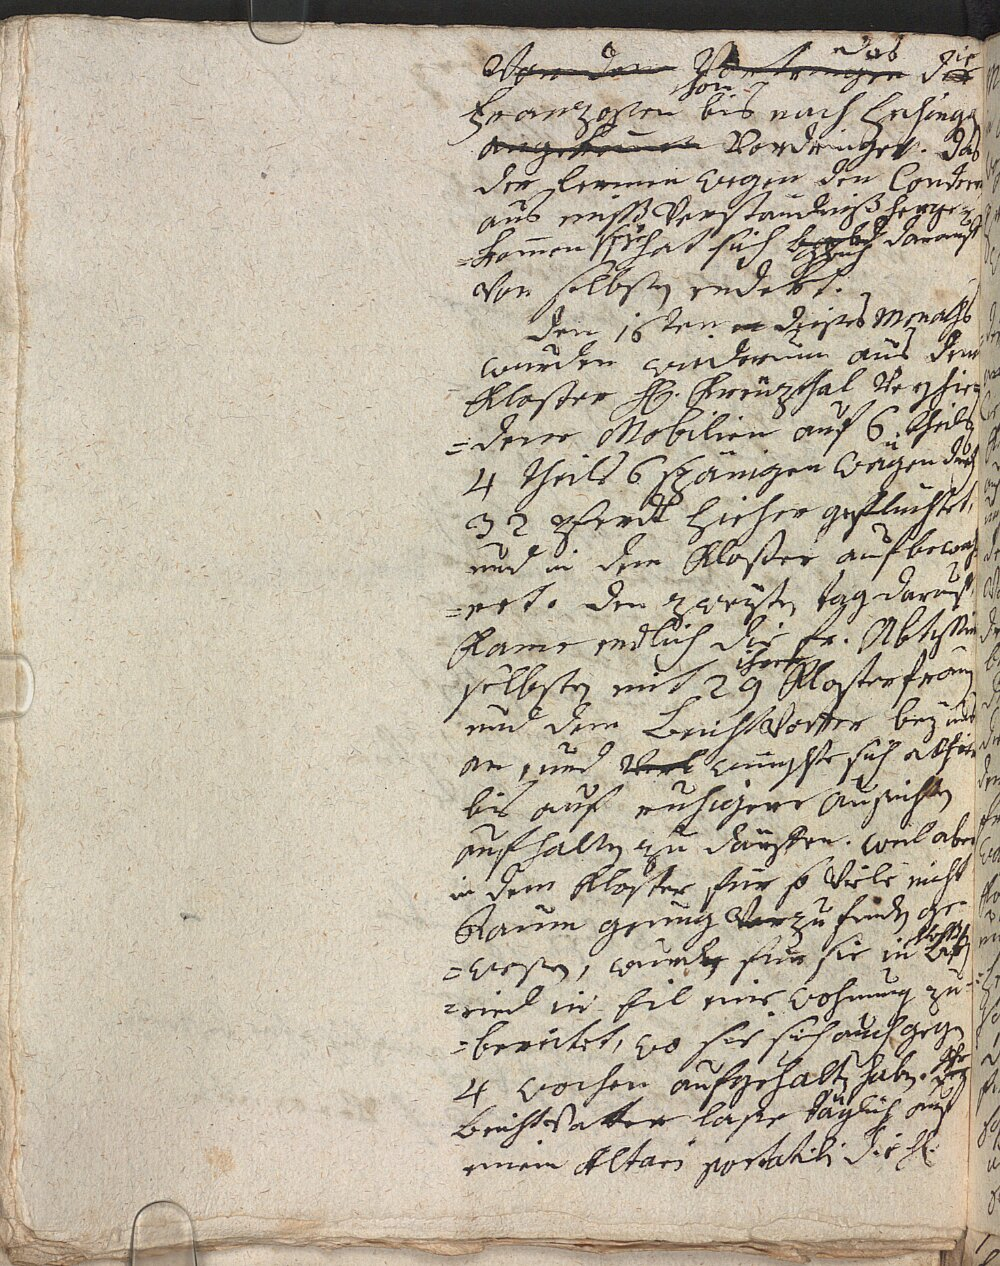 Von dem Vordringen das die
Franzosen schon bis nach Ehinge
angekomen Vordringen. Das
der Lermen wegen den Conde
aus mißVerständniß herge=
=kommen seye hat sich darauf
Von selbsten endekt.
den 16ten dieses Monaths
wurden widerum aus dem
Kloster Hl. Kreüzthal Verschie=
=dene Mobilien auf 6 theils
4 theils 6 spänigen wägen durch
32 Pferdt hieher geflüchtet,
und in dem Kloster aufbewah=
=ret. den zweyten tag darauf
kame endlich die Fr. Abtissin
selbsten mit 29 ihren Klosterfrauen
und dem BeichtVatter bey uns
an, und wünschte sich alhier
bis auf ruhigere aussichten
aufhalten zu därffen. weil aber
in dem Kloster für so Viele nicht
Raum genug zu finden ge=
=wesen, wurde für sie in
=ried in eil eine wohnung zu=
=bereitet, wo sie sich auch gegen
4 wochen aufgehalten haben. Der
beichtVatter lase täglich auf
einem Altari portatili die Hl.